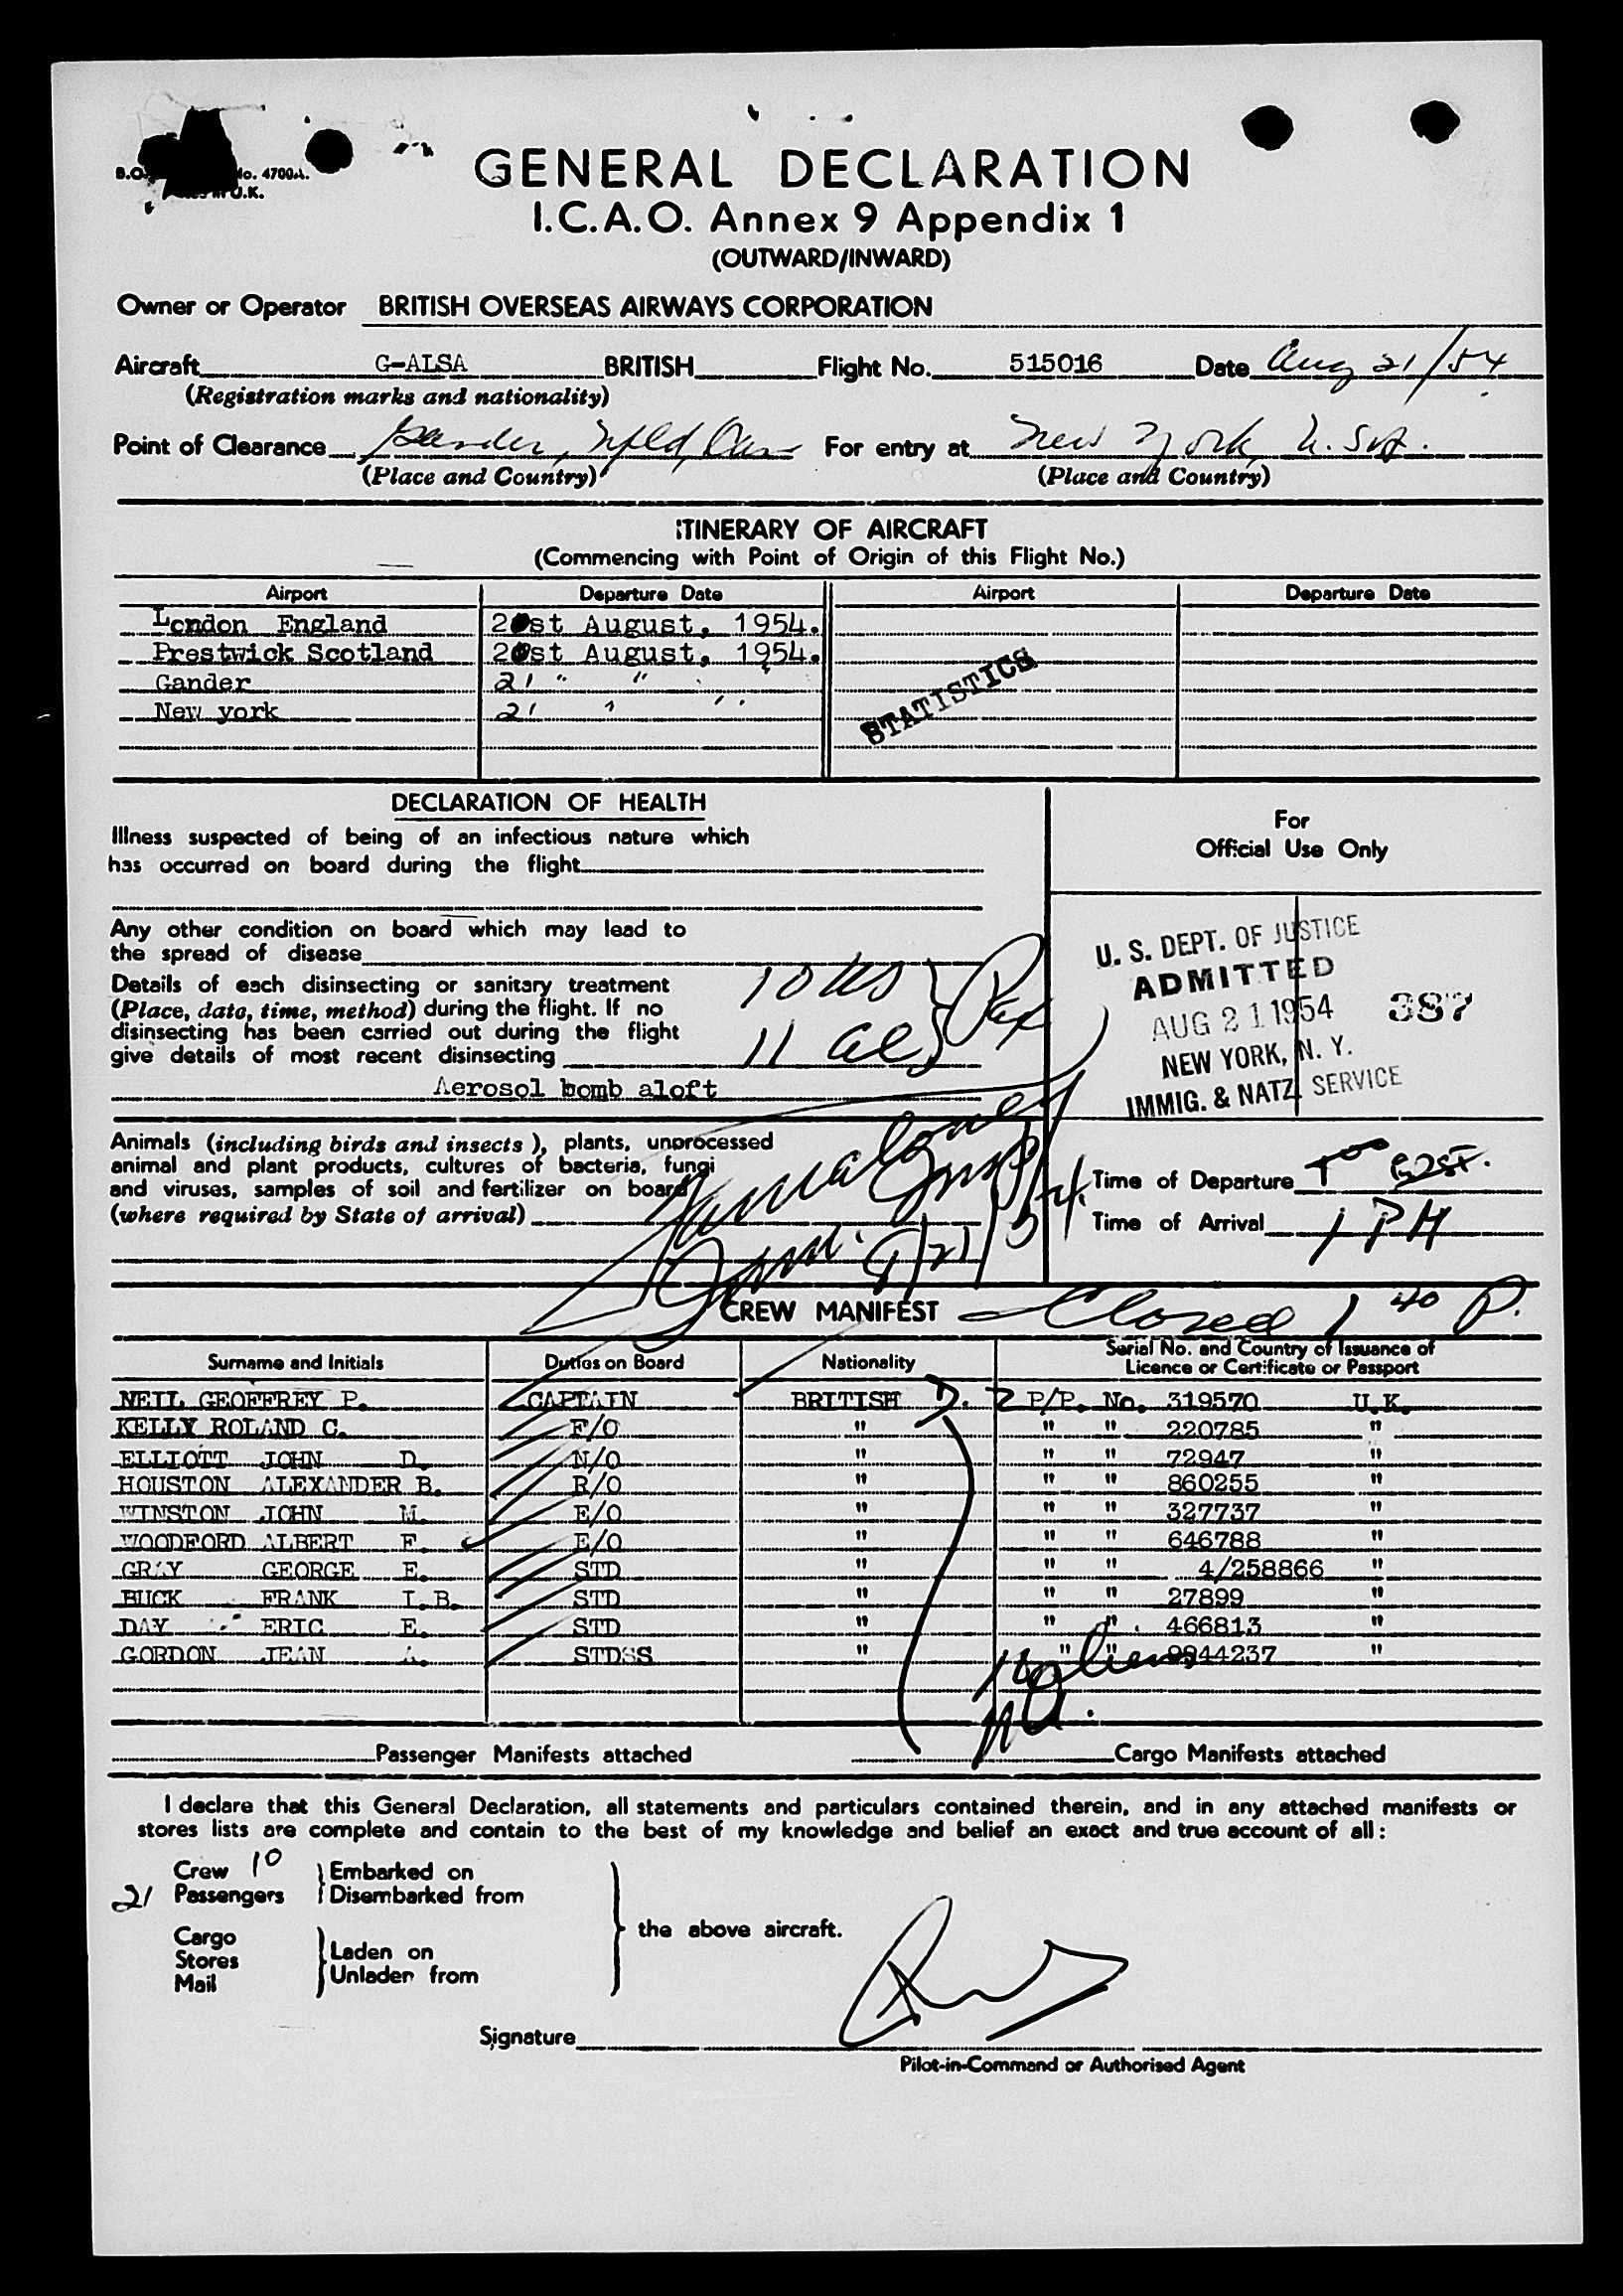 B.O. No. 4700A.
U.K.
GENERAL DECLARATION
I.C.A.O. Annex 9 Appendix 1
(OUTWARD/INWARD)
Owner or Operator BRITISH OVERSEAS AIRWAYS CORPORATION
Aircraft G-ALSA BRITISH Flight No. 515016 Date Aug 21/54
(Registration marks and nationality)
Point of Clearance Gander, Nfld, Can For entry at New York, U.S.A.
(Place and Country) (Place and Country)
ITINERARY OF AIRCRAFT
(Commencing with Point of Origin of this Flight No.)
Airport Departure Date Airport Departure Date
London England 20st August, 1954.
Prestwick Scotland 20st August, 1954.
Gander 21 " "
New york 21 " "
STATISTICS
DECLARATION OF HEALTH
For
Official Use Only
Illness suspected of being of an infectious nature which
has occurred on board during the flight
Any other condition on board which may lead to
the spread of disease
Details of each disinsecting or sanitary treatment
(Place, date, time, method) during the flight. If no
disinsecting has been carried out during the flight
give details of most recent disinsecting
Aerosol bomb aloft
10 US
11 al } Pax
U. S. DEPT. OF JUSTICE
ADMITTED
AUG 21 1954 387
NEW YORK, N. Y.
IMMIG. & NATZ. SERVICE
Animals (including birds and insects), plants, unprocessed
animal and plant products, cultures of bacteria, fungi
and viruses, samples of soil and fertilizer on board
(where required by State of arrival)
Insp
Imm. 8/21/54
Time of Departure
Time of Arrival 1 PM
CREW MANIFEST Closed 1 40 P.
Surname and Initials Duties on Board Nationality Serial No. and Country of Issuance of
Licence or Certificate or Passport
NEIL GEOFFREY P. CAPTAIN BRITISH P/P. No. 319570 U.K.
KELLY ROLAND C. F/O " " " 220785 "
ELLIOTT JOHN D. N/O " " " 72947 "
HOUSTON ALEXANDER B. R/O " " " 860255 "
WINSTON JOHN M. E/O " " " 327737 "
WOODFORD ALBERT F. E/O " " " 646788 "
GRAY GEORGE E. STD " " " 4/258866 "
BUCK FRANK I.B. STD " " " 27899 "
DAY ERIC E. STD " " " 466813 "
GORDON JEAN A. STDSS " " " 44237 "
10 aliens
Passenger Manifests attached Cargo Manifests attached
I declare that this General Declaration, all statements and particulars contained therein, and in any attached manifests or
stores lists are complete and contain to the best of my knowledge and belief an exact and true account of all:
Crew 10 Embarked on
21 Passengers Disembarked from
the above aircraft.
Cargo
Stores Laden on
Mail Unladen from
Signature
Pilot-in-Command or Authorised Agent